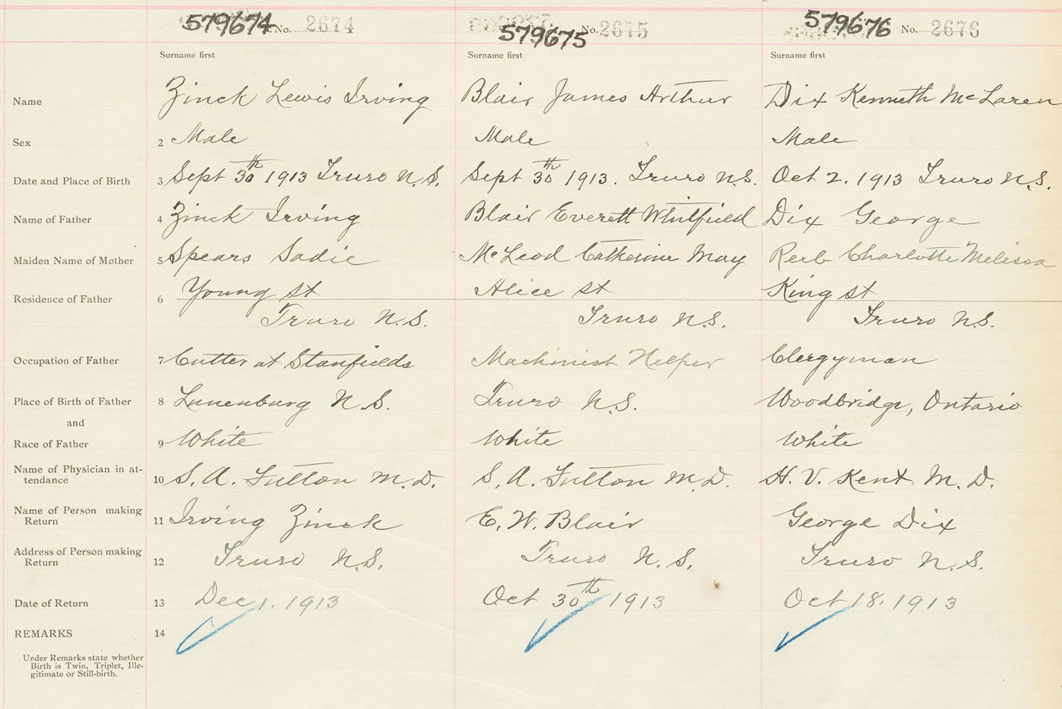 579674 No. 2674 579675 No. 2675 579676 No. 2676
Surname first Surname first Surname first
Name Zinck Lewis Irving Blair James Arthur Dix Kenneth McLaren
Sex 2 Male Male Male
Date and Place of Birth 3 Sept 30th 1913 Truro N.S. Sept 30th 1913. Truro N.S. Oct 2. 1913 Truro N.S.
Name of Father 4 Zinck Irving Blair Everett Whitfield Dix George
Maiden Name of Mother 5 Spears Sadie McLeod Catherine May Reeb Charlotte Melissa
Residence of Father 6 Young St Alice St King St
Truro N.S. Truro N.S. Truro N.S.
Occupation of Father 7 Cutter at Stanfields Machinist Helper Clergyman
Place of Birth of Father 8 Lunenburg N.S. Truro N.S. Woodbridge, Ontario
and
Race of Father 9 White White White
Name of Physician in at-
tendance 10 S. A. Fulton M.D. S. A. Fulton M.D. H. V. Kent M.D.
Name of Person making
Return 11 Irving Zinck E. W. Blair George Dix
Address of Person making
Return 12 Truro N.S. Truro N.S. Truro N.S.
Date of Return 13 Dec 1. 1913 Oct 30th 1913 Oct 18. 1913
REMARKS 14
Under Remarks state whether
Birth is Twin, Triplet, Ille-
gitimate or Still-birth.